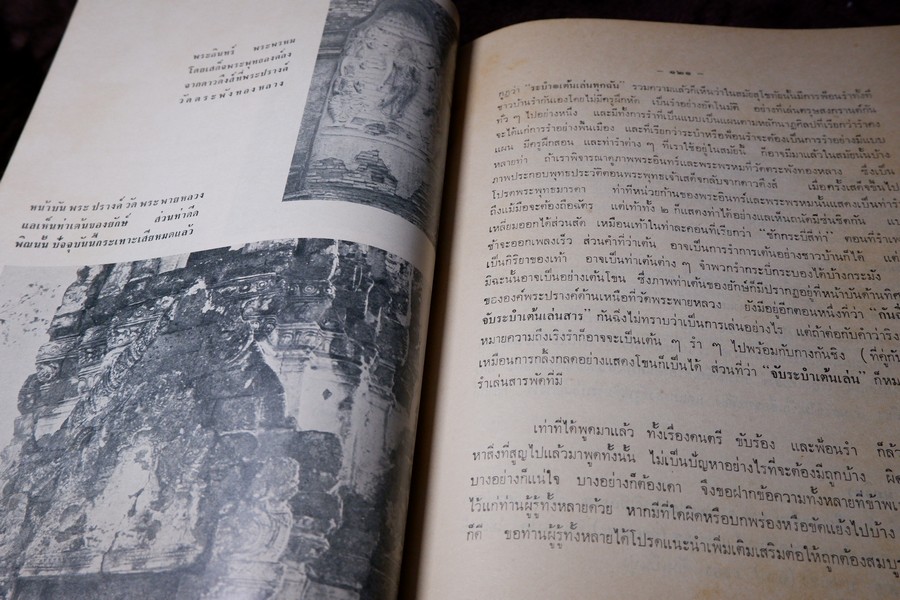 พระอินทร์ พระพรหม
โดยเสด็จพระพุทธองค์ลง
จากดาวดึงส์ที่พระปรางค์
วัดตระพังทองหลาง
หน้าบันพระปรางค์วัดพระพายหลวง
แลเห็นท่าเต้นของยักษ์ ส่วนท่าดีด
พิณนั้นปัจจุบันนี้กระเทาะเสียหมดแล้ว
- ๑๒๑ -
ดูฏว่า "ระบำ๒เต้นเล่นทุกฉัน" รวมความแล้วก็เห็นว่าในสมัยสุโขทัยนั้นมีการฟ้อนรำทั้งที่
ชาวบ้านรำกันเองโดยไม่มีครูฝึกหัด เป็นรำอย่างอัตโนมัติ อย่างที่เล่นตรุษสงกรานต์กัน
ทั่ว ๆ ไปอย่างหนึ่ง และมีทั้งการรำที่เป็นแบบเป็นแผนตามหลักนาฏศิลปที่เรียกว่ารำคง
จะได้แก่การรำอย่างพื้นเมือง และที่เรียกว่าระบำหรือฟ้อนรำจะต้องเป็นการรำอย่างมีแบบ
แผน มีครูฝึกสอน และท่ารำต่าง ๆ ที่เราใช้อยู่ในสมัยนี้ ก็อาจมีมาแล้วในสมัยนั้นบ้าง
หลายท่า ถ้าเราพิจารณาดูภาพพระอินทร์และพระพรหมที่วัดตระพังทองหลาง ซึ่งเป็น
ภาพประกอบพุทธประวัติตอนพระพุทธเจ้าเสด็จกลับจากดาวดึงส์ เมื่อครั้งเสด็จขึ้นไป
โปรดพระพุทธมารดา ท่าที่หน่วยก้นของพระอินทร์และพระพรหมนั้นแสดงเป็นท่ารำ
ถึงแม้มือจะต้องถือฉัตร แต่เท้าทั้ง ๒ ก็แสดงท่าได้อย่างแลเห็นถนัดมีเช่นชิดกัน
เหลี่ยมออกได้ส่วนสัด เหมือนเท้าในท่าละคอนที่เรียกว่า "ชักกระบี่สี่ท่า" ตอนที่รำเพ
ช้าจะออกเพลงเร็ว ส่วนคำที่ว่าเต้น อาจเป็นการรำการเต้นอย่างชาวบ้านก็ได้ แต่
เป็นกิริยาของเท้า อาจเป็นท่าเต้นต่าง ๆ จำพวกรำกระบี่กระบองได้บ้างกระมัง
มิฉะนั้นอาจเป็นอย่างเต้นโขน ซึ่งภาพท่าเต้นของยักษ์ก็มีปรากฏอยู่ที่หน้าบันด้านทิศ
ขององค์พระปรางค์ด้านเหนือที่วัดพระพายหลวง ยังมีอยู่อีกตอนหนึ่งที่ว่า "กันฉิ
จับระบำเต้นเล่นสาร" กันฉิ่งไม่ทราบว่าเป็นการเล่นอย่างไร แต่ถ้าต่อกับคำว่าริง
หมายความถึงเริงรำก็อาจจะเป็นเต้น ๆ รำ ๆ ไปพร้อมกับกางกันชิง (ที่คู่กับ
เหมือนการกลิ้งกลดอย่างแสดงโขนก็เป็นได้ ส่วนที่ว่า "จับระบำเต้นเล่น" ก็หม
รำเล่นสารพัดที่มี
เท่าที่ได้พูดมาแล้ว ทั้งเรื่องดนตรี ขับร้อง และฟ้อนรำ ก็ล้ว
หาสิ่งที่สูญไปแล้วมาพูดทั้งนั้น ไม่เป็นปัญหาอย่างไรที่จะต้องมีถูกบ้าง ผิด
บางอย่างก็แน่ใจ บางอย่างก็ต้องเดา จึงขอฝากข้อความทั้งหลายที่ข้าพเ
ไว้แก่ท่านผู้รู้ทั้งหลายด้วย หากมีที่ใดผิดหรือบกพร่องหรือขัดแย้งไปบ้าง
ก็ดี ขอท่านผู้รู้ทั้งหลายได้โปรดแนะนำเพิ่มเติมเสริมต่อให้ถูกต้องสมบู